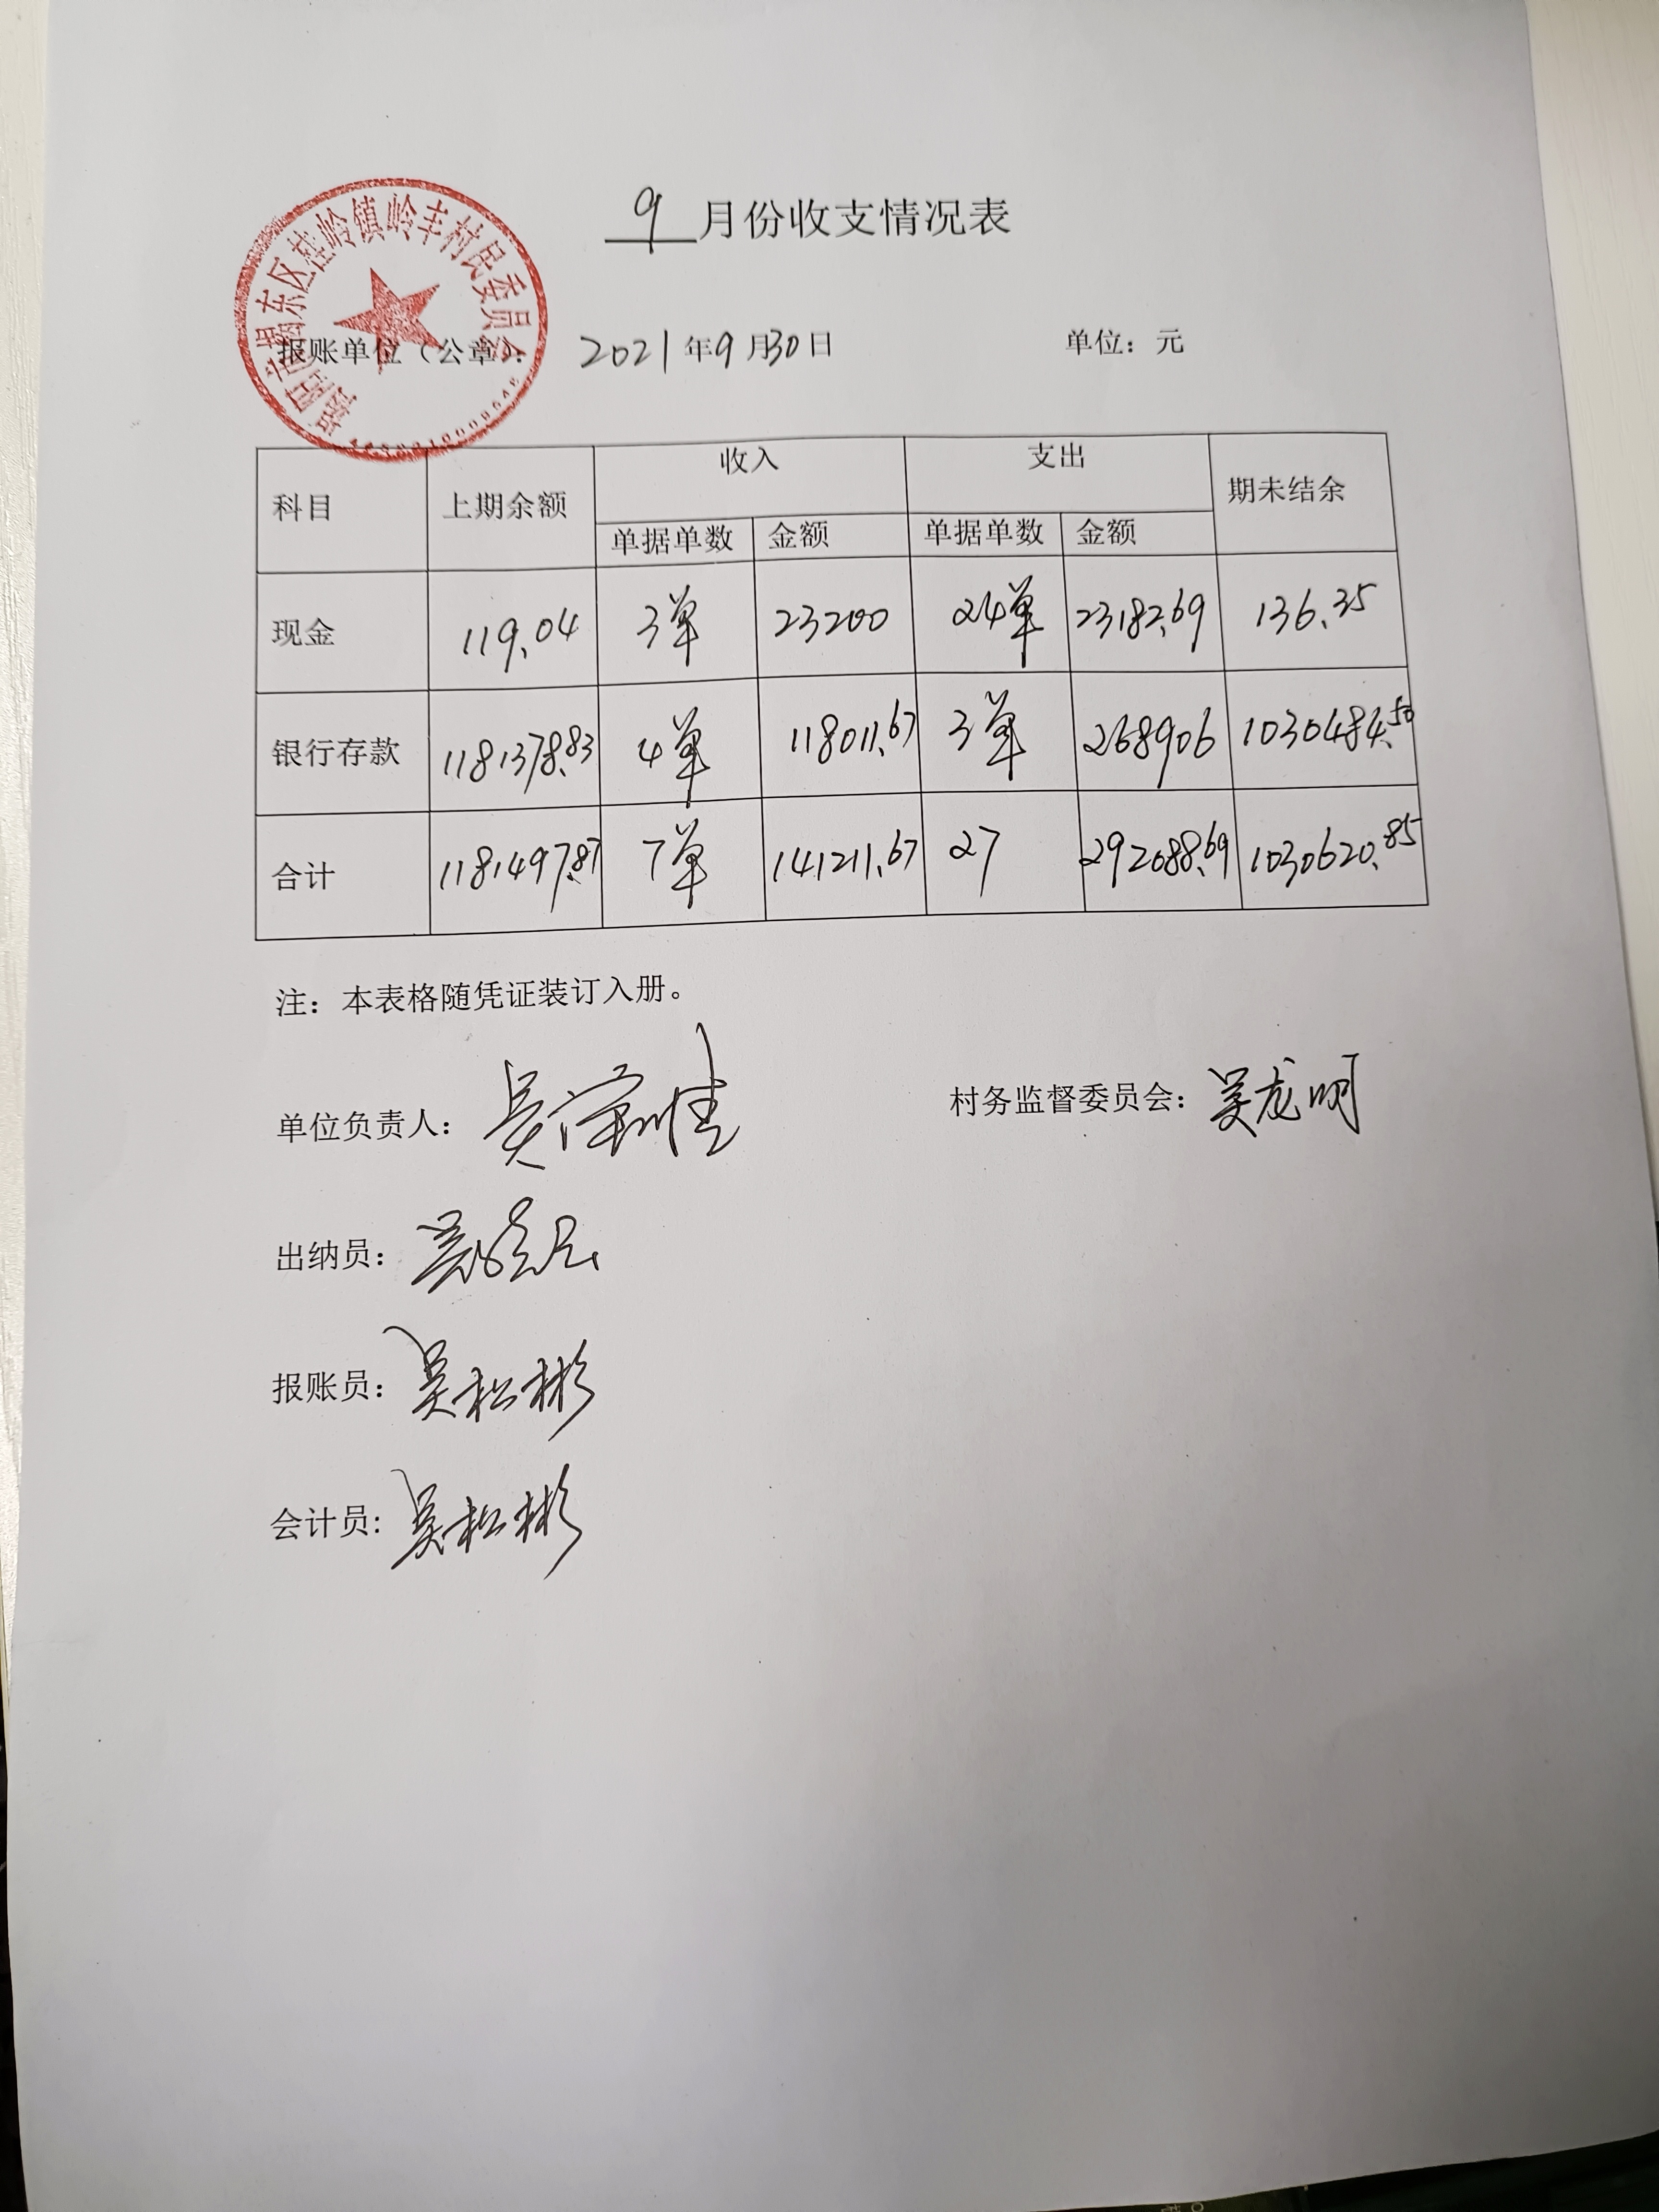 9月份收支情况表
揭阳市揭东区桂岭镇岭丰村民委员会
报账单位（公章）： 2021年9月30日 单位：元
科目 上期余额 收入 支出 期未结余
单据单数 金额 单据单数 金额
现金 119.04 3单 23200 24单 23182.69 136.35
银行存款 1181378.83 4单 118011.67 3单 268906 1030484.50
合计 1181497.87 7单 141211.67 27 292088.69 1030620.85
注：本表格随凭证装订入册。
单位负责人： 村务监督委员会：吴龙明
出纳员：
报账员：吴松彬
会计员：吴松彬